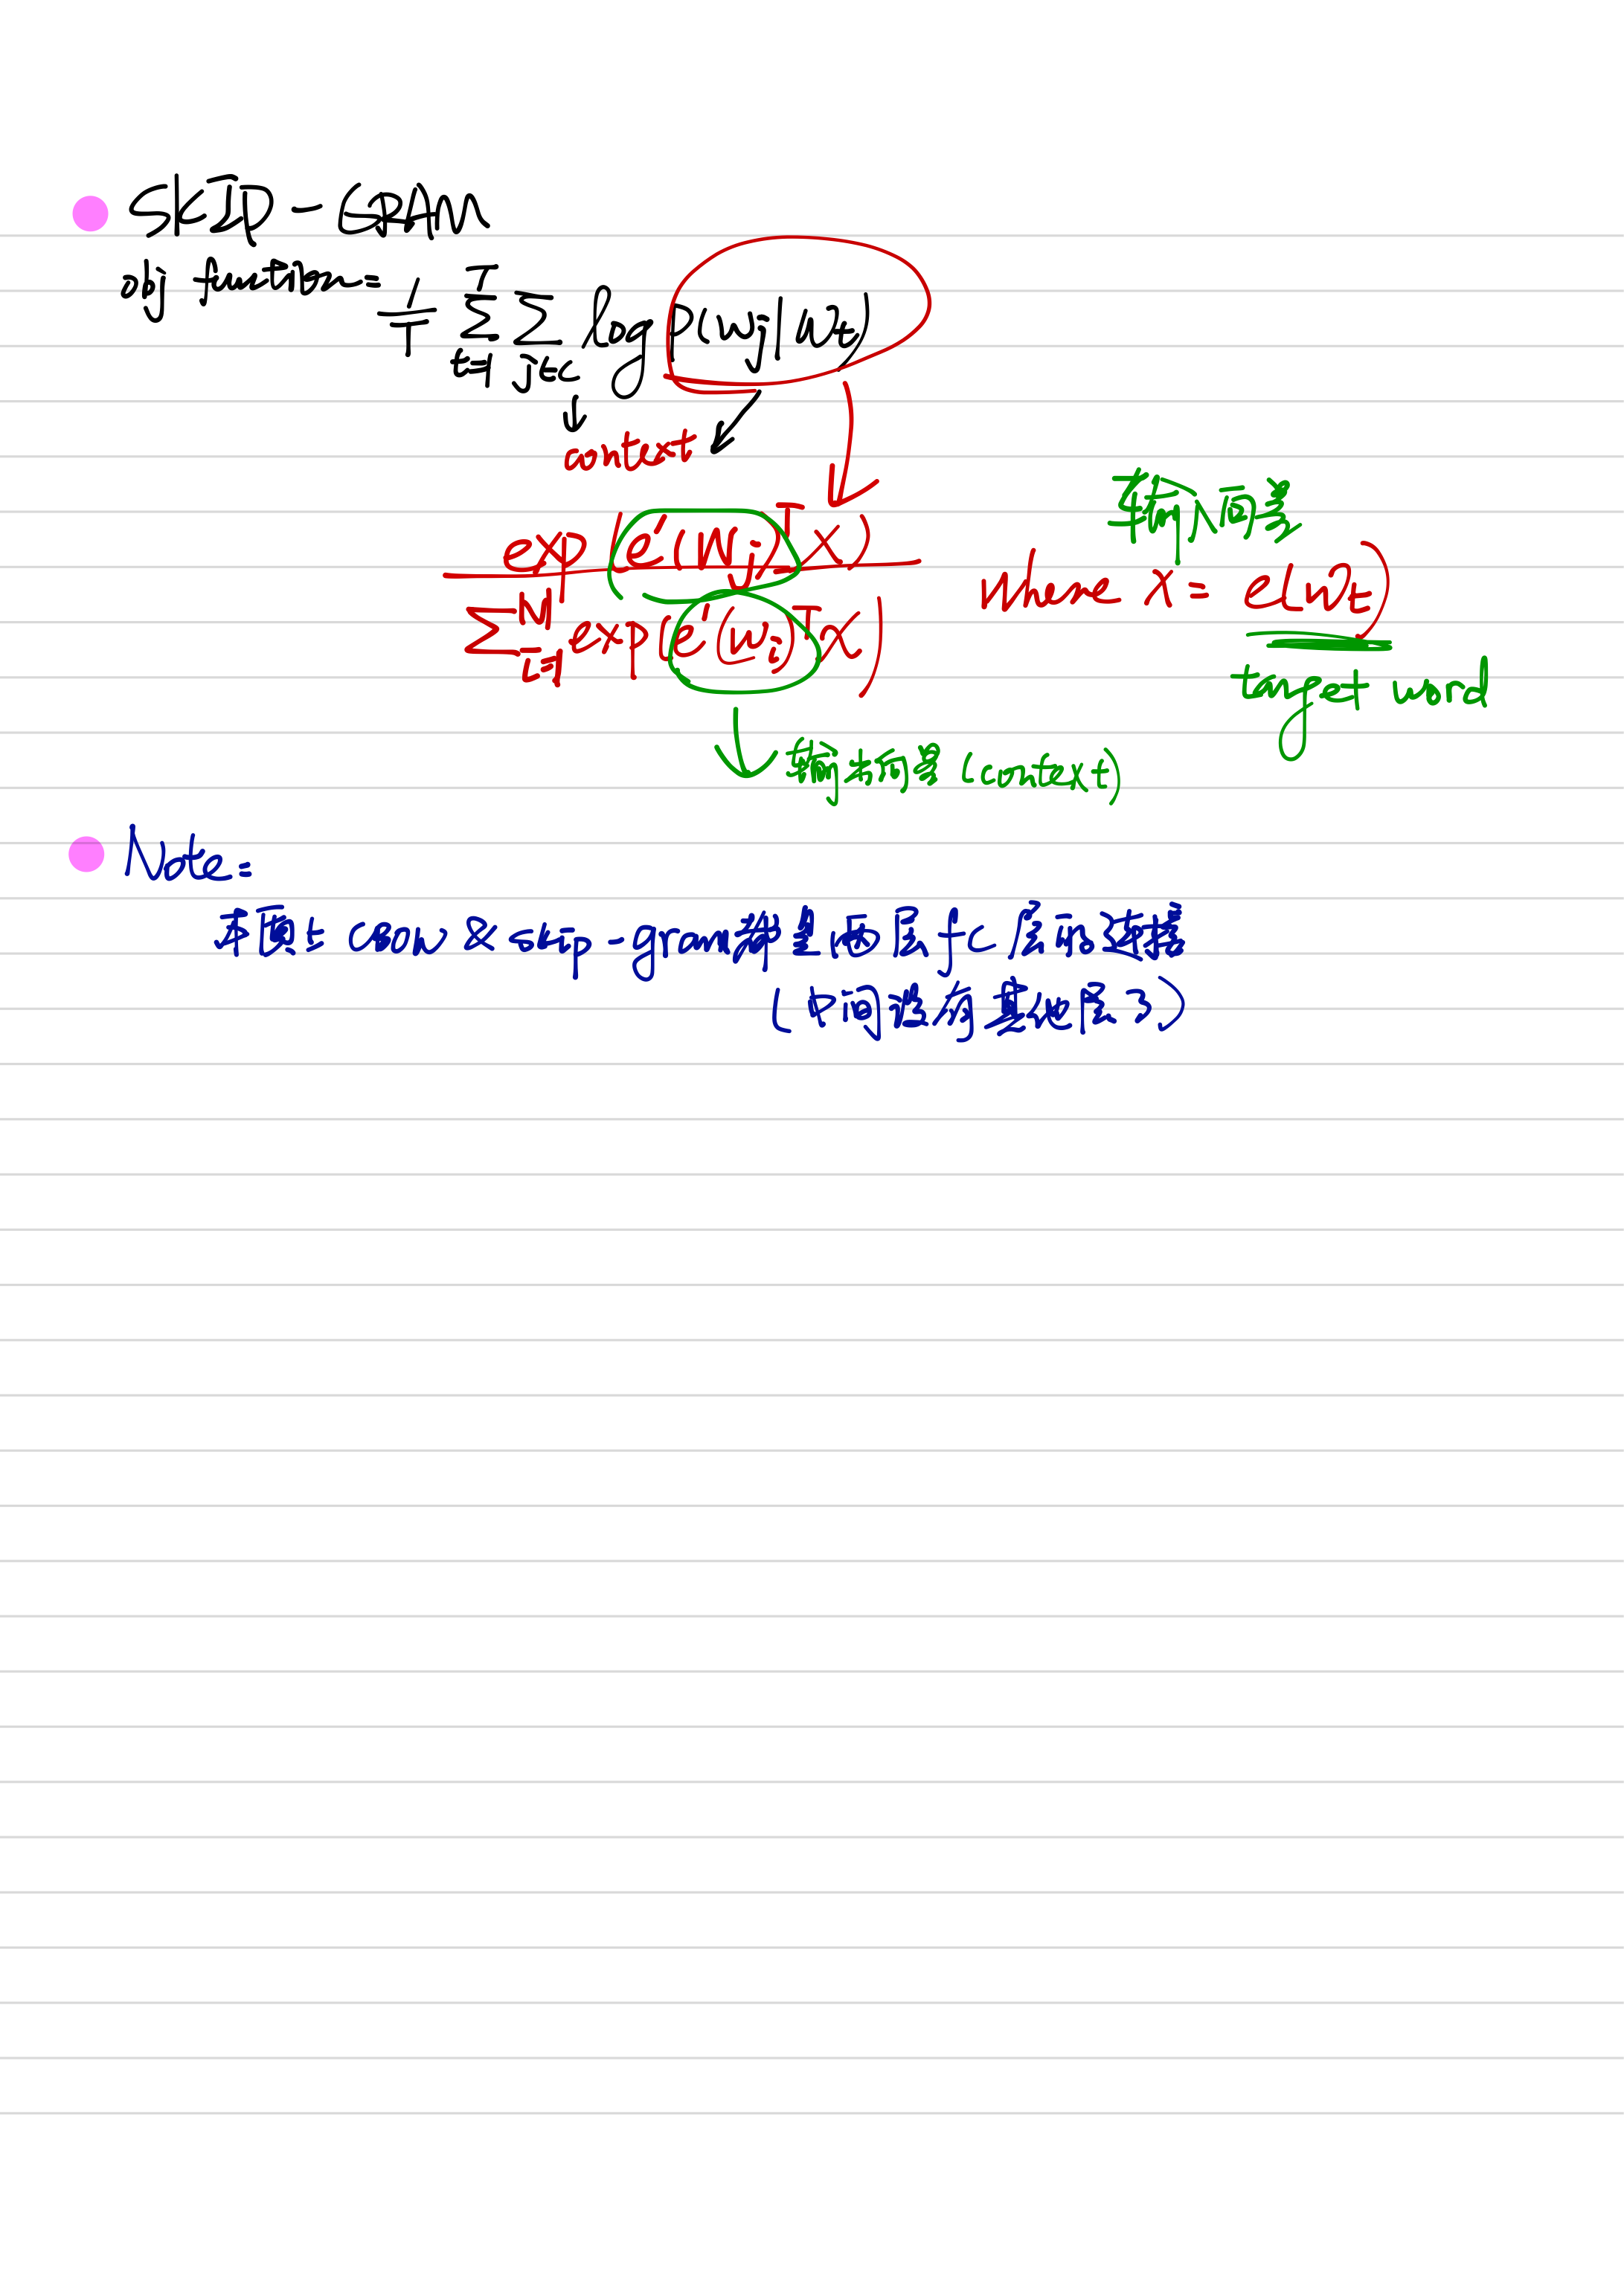 SKIP-GRAM
obj function:
1/T ∑_{t=1}^{T} ∑_{j∈c} log P(w_j|w_t)
context
输入向量
exp(e'(w_j)^T x) / ∑_{i=1}^{|V|} exp(e'(w_i)^T x)
where x = e(w_t)
target word
输出向量 (context)
Note:
本质上 CBOW & skip-gram 都是两层 fc 层的连接
(中间没有其他层了)